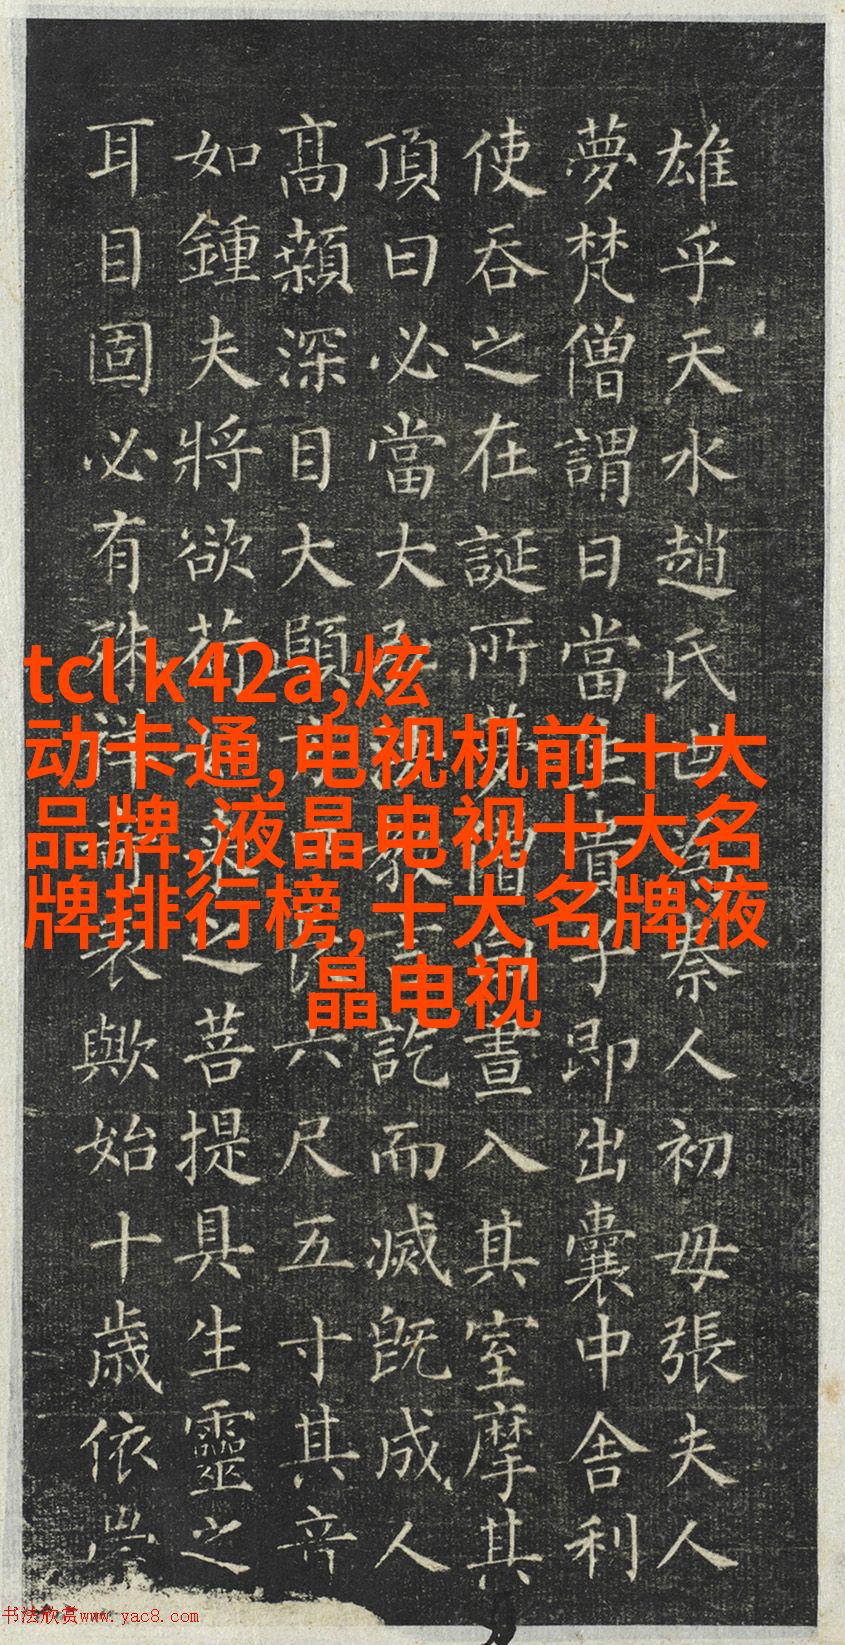 雄乎天水趙氏世秦人初母張夫人
夢梵僧謂曰當生貴子即出囊中舍利
使吞之在誕所夢僧白晝入其室摩其
頂曰必當大法教言訖而滅既成人
高顙深目大頤方口六尺五寸其音
如鍾夫將欲荷如來之菩提具生靈之
耳目固必有殊祥奇表歟始十歲依
tcl k42a,炫
动卡通,电视机前十大
品牌,液晶电视十大名
牌排行榜,十大名牌液
晶电视
书法欣赏www.yac8.com